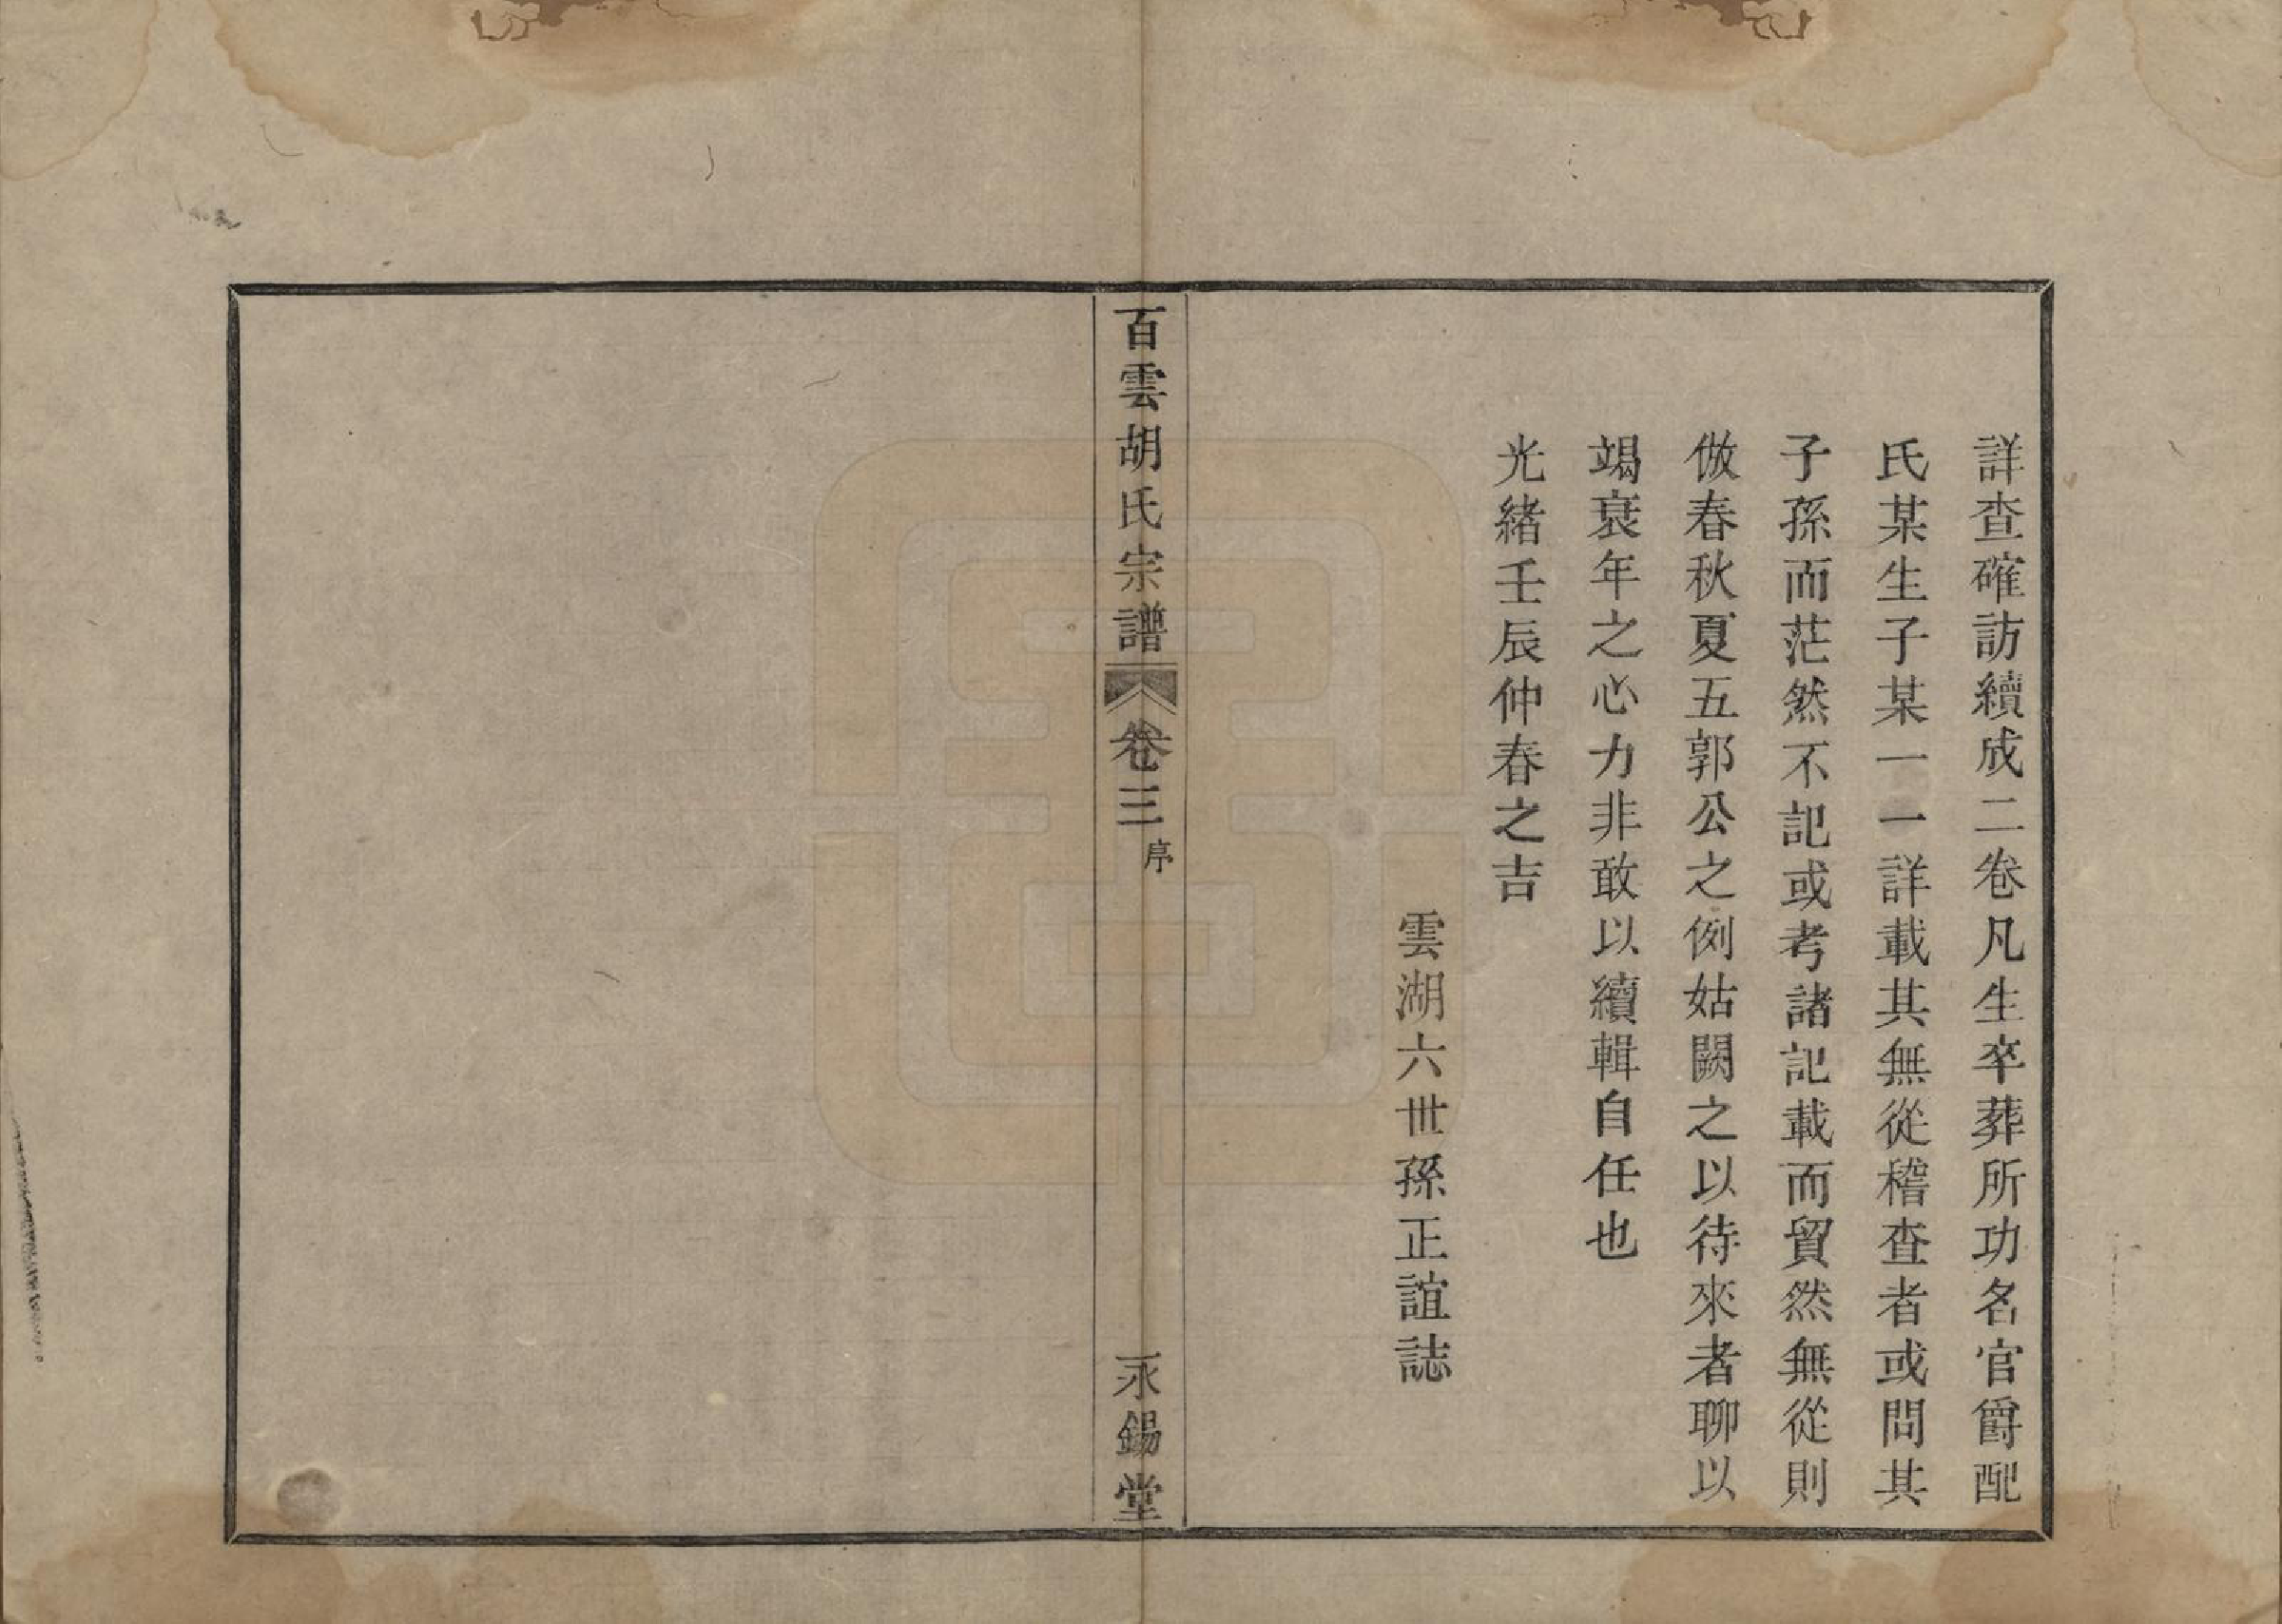 詳查確訪續成二卷凡生卒葬所功名官爵配
氏某生子某一一詳載其無從稽查者或問其
子孫而茫然不記或考諸記載而貿然無從則
倣春秋夏五郭公之例姑闕之以待來者聊以
竭衰年之心力非敢以續輯自任也
光緒壬辰仲春之吉
雲湖六世孫正誼誌
百雲胡氏宗譜 卷三 序 永錫堂